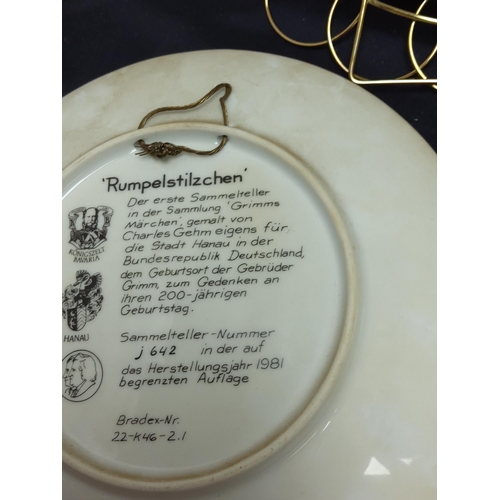 'Rumpelstilzchen'
Der erste Sammelteller
in der Sammlung 'Grimms
Märchen', gemalt von
Charles Gehm eigens für
die Stadt Hanau in der
Bundesrepublik Deutschland,
dem Geburtsort der Gebrüder
Grimm, zum Gedenken an
ihren 200-jährigen
Geburtstag.
KÖNIGSZELT
BAVARIA
HANAU
Sammelteller-Nummer
j 642 in der auf
das Herstellungsjahr 1981
begrenzten Auflage
Bradex-Nr.
22-K46-2.1